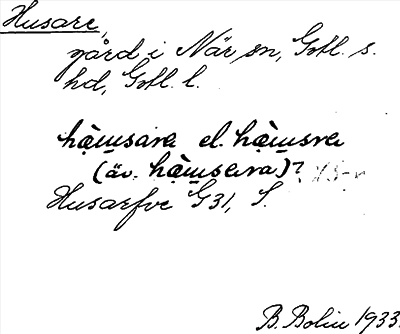 Husare,
gård i När sn, Gotl. s.
hd, Gotl. l.
hæ̀u̯sara el. hæ̀u̯sra
(äv. hæ̀u̯sɐra)?
Husarfve G31, S.
B. Bolin 1933.